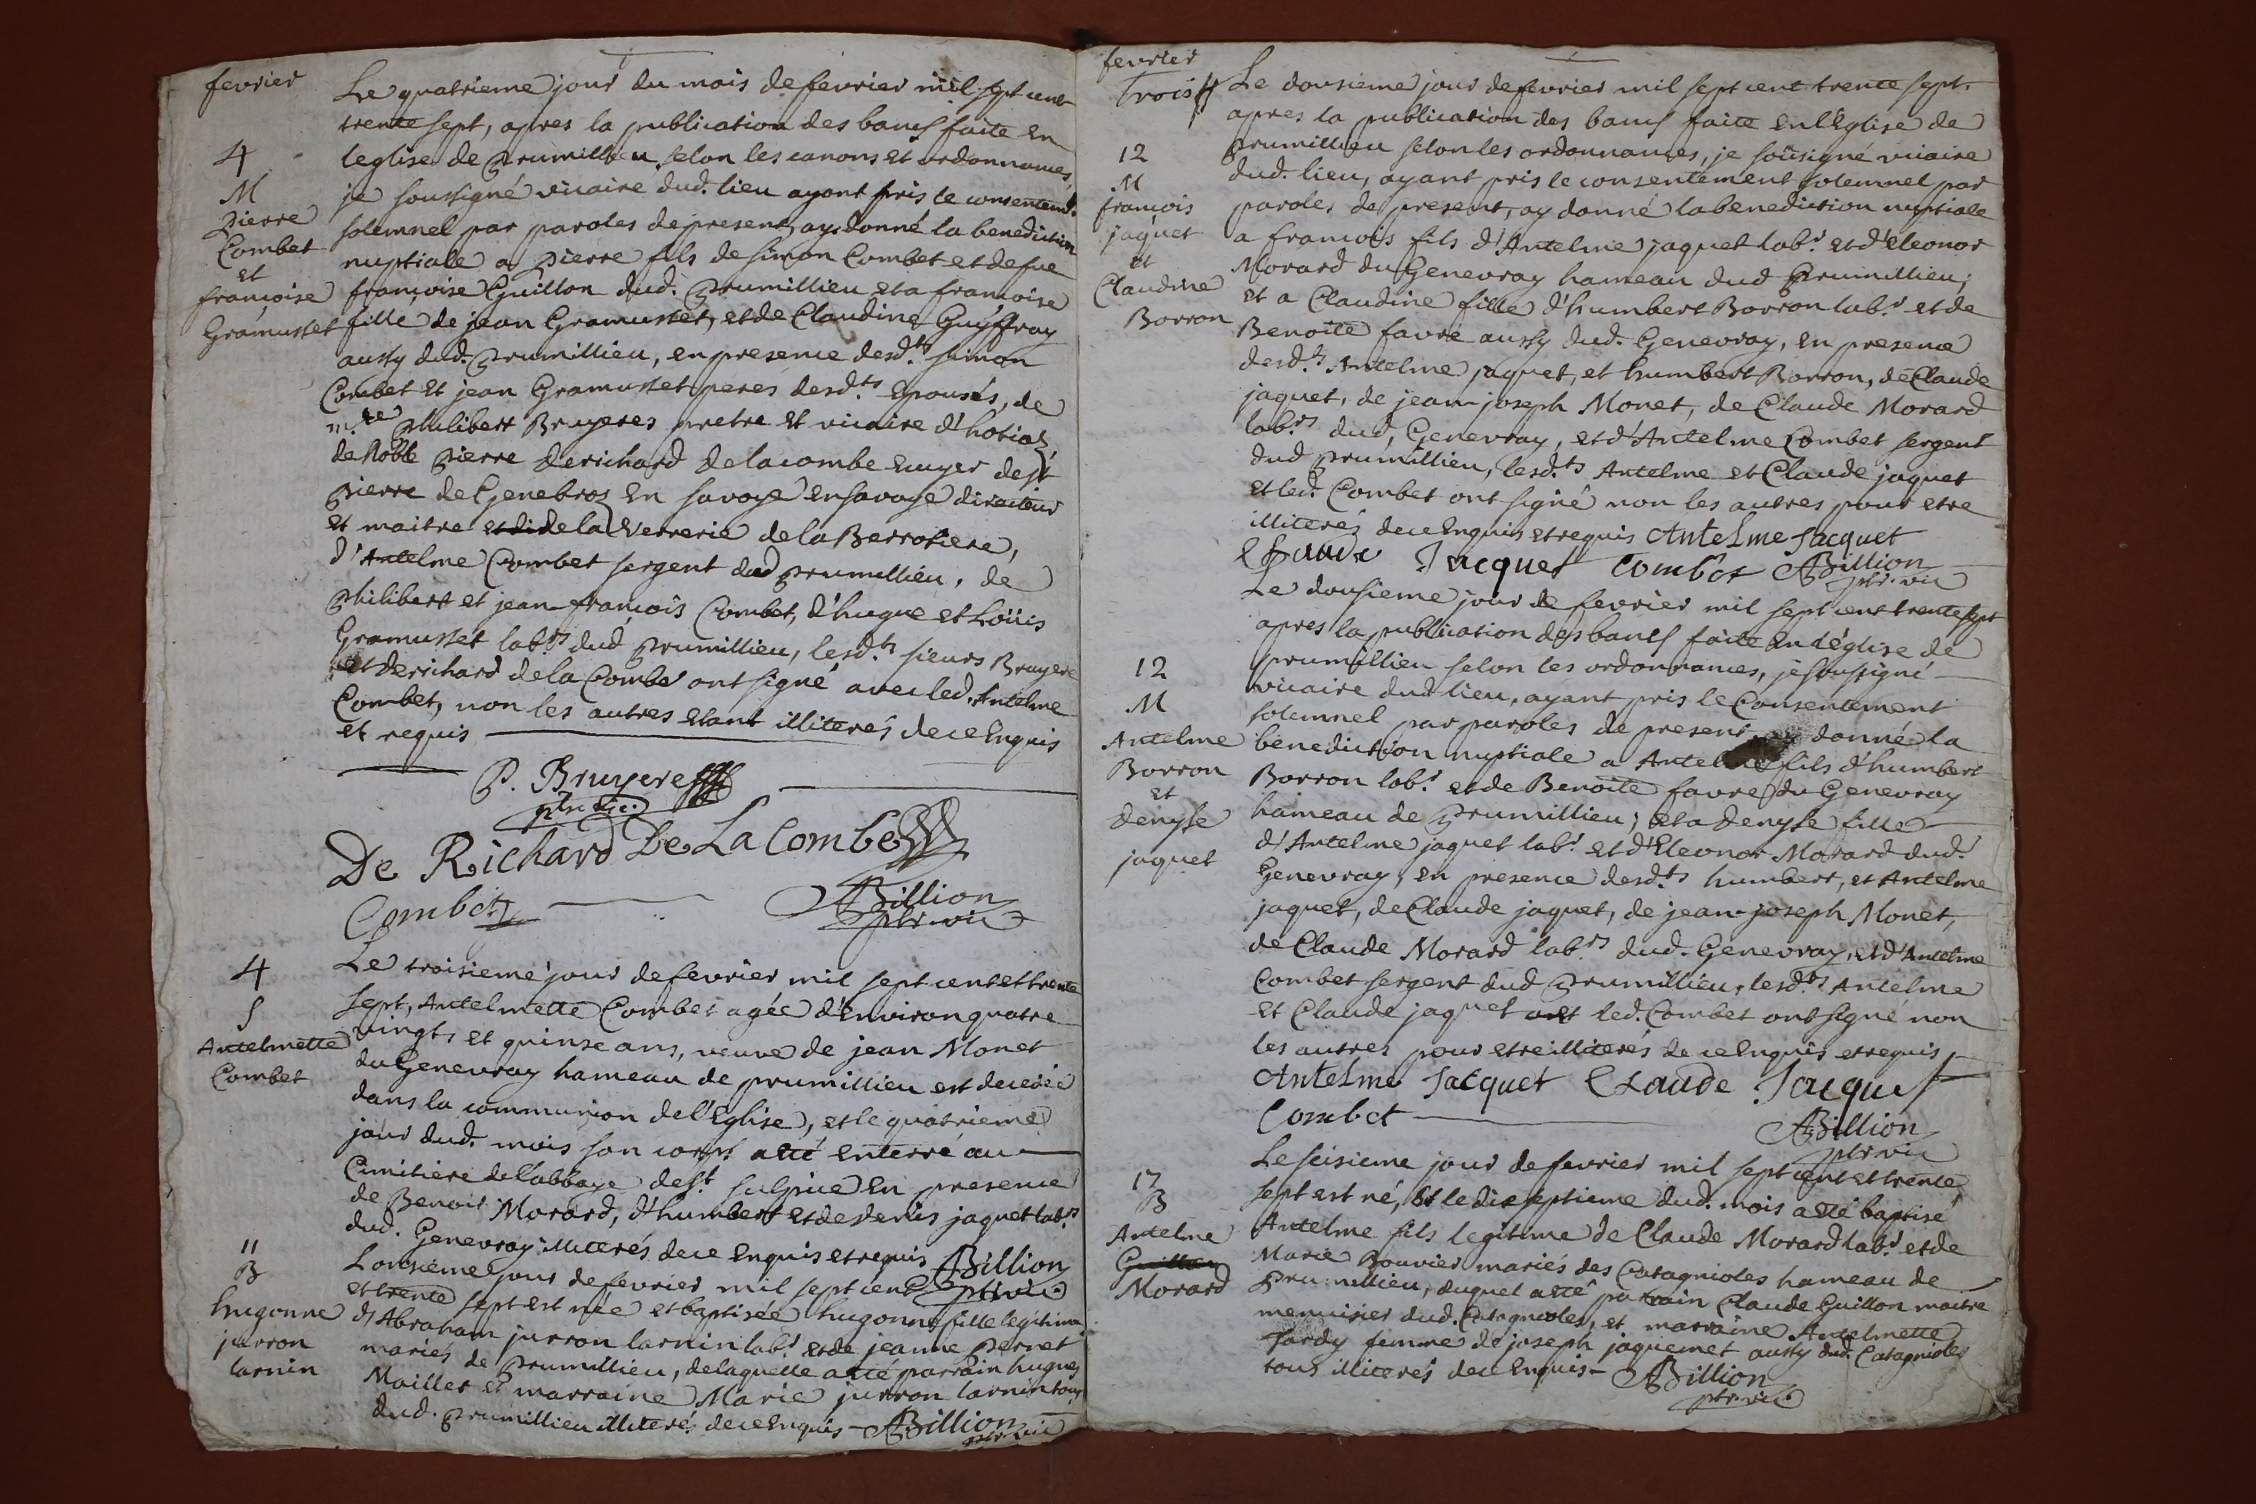 fevrier
Le quatrieme jour du mois de fevrier mil sept cent
trente sept, apres la publication des bancs faite en
4
l'eglise de Prumillieu selon les canons et ordonnances,
M
je soussigné vicaire dud. lieu ayant pris le consentemt.
Pierre
solemnel par paroles de present, ay donné la benediction
Combet
nuptiale a Pierre fils de simon Combet et de fue
et
francoise
françoise Guillon dud. Prumillieu et a francoise
Gramusset
fille de jean Gramusset, et de Claudine Guyffray
aussy dud. Prumillieu, en presence desd.ts simon
Combet et jean Gramusset peres desd.ts epousés, de
m.re Philibert Bruyeres pretre et vicaire d'hotias
de Noble Pierre derichard delacombe ecuyer de st
Pierre de Genebros en savoye en savoye directeur
et maitre et di de la Verrerie de la Barrotiere,
d'Antelme Combet sergent dud Prumillieu, de
Philibert et jean-françois Combet, d'hugue et Loüis
Gramusset lab.rs dud Prumillieu, lesd.ts sieurs Bruyere
et derichard de la Combe ont signé avec led. Antelme
Combet, non les autres etant illiterés de ce enquis
et requis
P. Bruyere
ptre vic.
De Richard De La Combe
Combet
ABillion
ptr vic
4
Le troisieme jour de fevrier mil sept cent et trente
S
sept, Antelmette Combet agée d'environ quatre
Antelmette
vingts et quinse ans, veuve de jean Monet
Combet
du Genevray hameau de prumillieu est decedée
dans la communion de l'Eglise, et le quatrieme
jour dud. mois son corps a eté enterré au
Cimitiere de l'abbaye de st. sulpice en presence
de Benoit Morard, d'humbert et de denis jaquet lab.rs
dud. Genevray illiterés de ce enquis et requis ABillion
ptr vic
11
L'onsieme jour de fevrier mil sept cent
B
et trente sept est née et baptisée hugonne fille legitime
hugonne
d'Abraham jurron larnin lab.r et de jeanne Pernet
jurron
mariés de Prumillieu, de laquelle a eté parrain hugues
larnin
Maillet et marraine Marie jurron larnin tous
dud. Prumillieu illiterés de ce enquis - ABillion
ptr vic
fevrier
Trois
Le dousieme jour de fevrier mil sept cent trente sept.
apres la publication des bancs faite en l'Eglise de
12
Prumillieu selon les ordonnances, je soüsigné vicaire
M
dud. lieu, ayant pris le consentement solemnel par
francois
paroles de present, ay donné la benediction nuptiale
jaquet
a francois fils d'Antelme jaquet lab.r et d'Eleonor
et
Morard du Genevray hameau dud Prumillieu;
Claudine
et a Claudine fille d'humbert Borron lab.r et de
Borron
Benoite favre aussy dud. Genevray, en presence
desd.ts Antelme jaquet, et humbert Borron, de Claude
jaquet, de jean-joseph Monet, de Claude Morard
lab.rs dud. Genevray, et d'Antelme Combet sergent
dud Prumillieu, lesd.ts Antelme et Claude jaquet
et led. Combet ont signé non les autres pour etre
illiterés de ce enquis et requis Antelme Jacquet
Claude Jacquet Combet ABillion
ptr. vic
Le dousieme jour de fevrier mil sept cent trente sept
apres la publication des bancs faite en l'église de
12
prumillieu selon les ordonnances, je soussigné
M
vicaire dud lieu, ayant pris le Consentement
solemnel par paroles de present, donné la
Antelme
benediction nuptiale a Antelme fils d'humbert
Borron
Borron lab.r et de Benoite favre du Genevray
et
denyse
hameau de Prumillieu; et a denyse fille
jaquet
d'Antelme jaquet lab.r et d'Eleonor Morard dud.
Genevray, en presence desd.ts humbert, et Antelme
jaquet, de Claude jaquet, de jean-joseph Monet,
de Claude Morard lab.rs dud. Genevray, et d'Antelme
Combet sergent dud Prumillieu, lesd.ts Antelme
et Claude jaquet et led. Combet ont signé non
les autres pour etre illiterés de ce enquis et requis
Antelme Jacquet Claude Jacquet
Combet
ABillion
ptr vic
Le seisieme jour de fevrier mil sept cent et trente
17
sept est né, et le dixseptieme dud. mois a eté baptisé
B
Antelme
Antelme fils legitime de Claude Morard lab.r et de
Guillon
Marie Bouvier mariés des Catagnioles hameau de
Morard
Prumillieu, duquel a eté parrain Claude Guillon maitre
menuisier dud. Catagnioles, et marraine Antelmette
Tardy femme de joseph jaquemet aussy dud. Catagnioles
tous illiterés de ce enquis - ABillion
ptr. vic